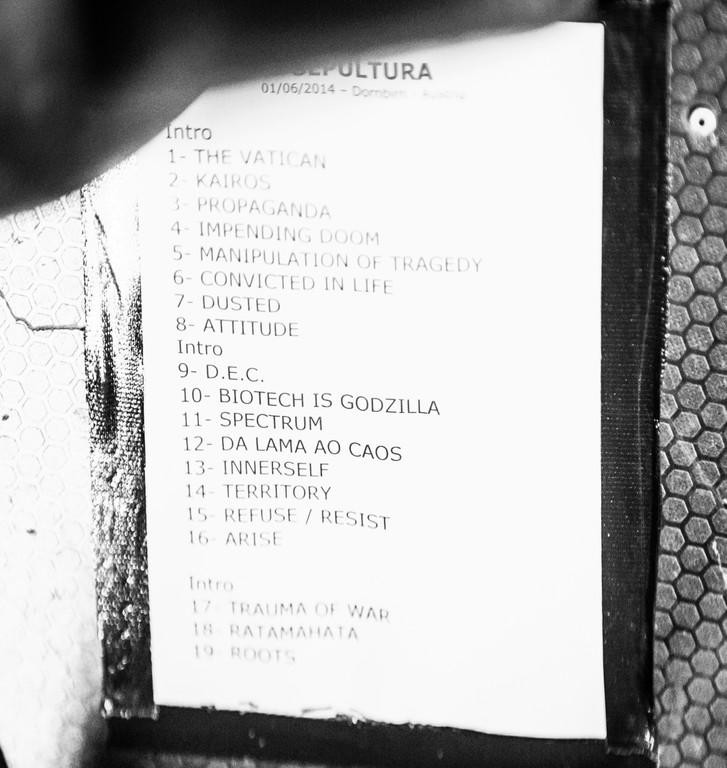 SEPULTURA
01/06/2014 – Dornbirn - Austria
Intro
1- THE VATICAN
2- KAIROS
3- PROPAGANDA
4- IMPENDING DOOM
5- MANIPULATION OF TRAGEDY
6- CONVICTED IN LIFE
7- DUSTED
8- ATTITUDE
Intro
9- D.E.C.
10- BIOTECH IS GODZILLA
11- SPECTRUM
12- DA LAMA AO CAOS
13- INNERSELF
14- TERRITORY
15- REFUSE / RESIST
16- ARISE
Intro
17- TRAUMA OF WAR
18- RATAMAHATA
19- ROOTS